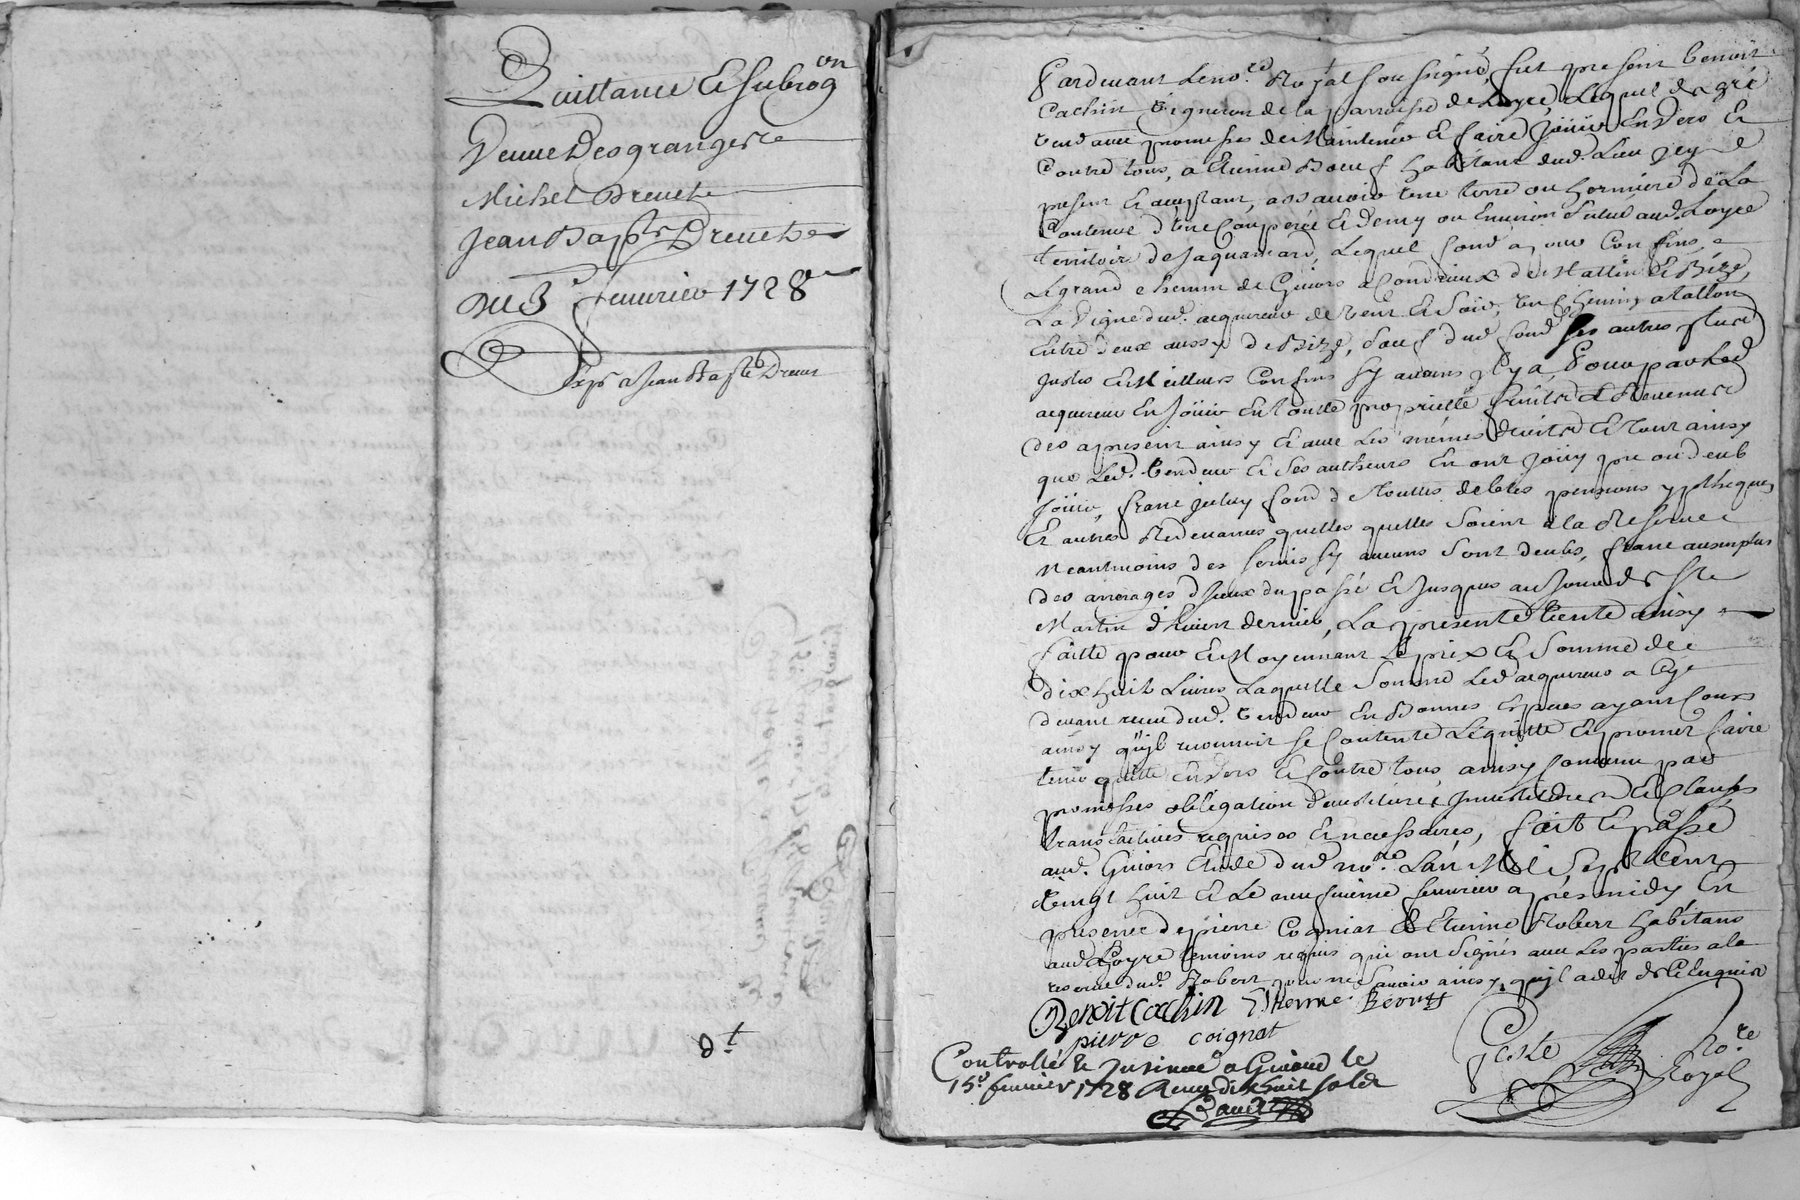 Quittance et subrog.on
Veuve Desgranges
Michel Dreuct
Jean Bap.te Dreuct
Du 3.e fevvrier 1728
Exp.e a Jean Bap.te Dreuct
d.t
Pardevant le no.re Royal soussigné, fut present benoit
Cachin Vigneron de la parroisse de Loyre, lequel de gré
vend avec promesses de Maintenir et faire Joüir Envers et
Contre tous, a Etienne Boeuf habitant dud. Lieu jcy
present et acceptant, assavoir une terre ou hermiere de La
Contenue d'une Couperée et demy ou Environ Situé aud. Loyre
territoire de Jaquamard, Lequel fond a pour Confins
Le grand chemin de Givors a Condrieux de Mattin et Bize,
La Vigne dud. acquereur de Vent et Soir, un chemin a tallon
Entre deux aussy de Bize, Sauf dud. fond ses autres plus
justes et Meilleurs Confins sy aucuns jl y a, Pour par Led.
acquereur En Joüir En toutte proprietté fruits et Revenus
des apresent ainsy et avec Les mêmes droits et tout ainsy
que Led. Vendeur et Ses autheurs En ont Joüy pu ou deub
Joüir, franc jceluy fond de touttes debtes pensions ypotheques
Et autres Redevances quelles quelles Soient a la Reserve
Neantmoins des servis sy aucuns Sont deubs, franc aussy plus
des arrerages d'jceux du passé et Jusques au Jour de St
Martin d'hivert dernier, La presente Vente ainsy
faitte pour et Moyennant Le prix et Somme de
dix huit Livres Laquelle Somme Led. acquereur a Cy
devant receu dud. Vendeur En Bonnes Especes ayant Cours
ainsy qu'jl reconnoit se Contente Le quitte et promet faire
tenir quitte Envers et Contre tous, ainsy Convenu par
promesses obligation Clauses
translatives requises et necessaires, fait et passé
aud. Givors Etude dud. no.re L'an Mil Sept Cent
Vingt huit et Le neufvieme fevvrier apres midy En
presence de pierre Cogniat et Etienne Robert habitans
aud. Loyre temoins requis qui ont Signés avec Les parties a la
reserve dud. Robert pour ne Savoir ainsy qu'jl a dit de ce Enquis
Benoit Cachin Etienne Beouf
pierre coignat
Geste No.re Royal
Controllé et Insinué a Givord le
15.e fevvrier 1728 Receu dix huit sols